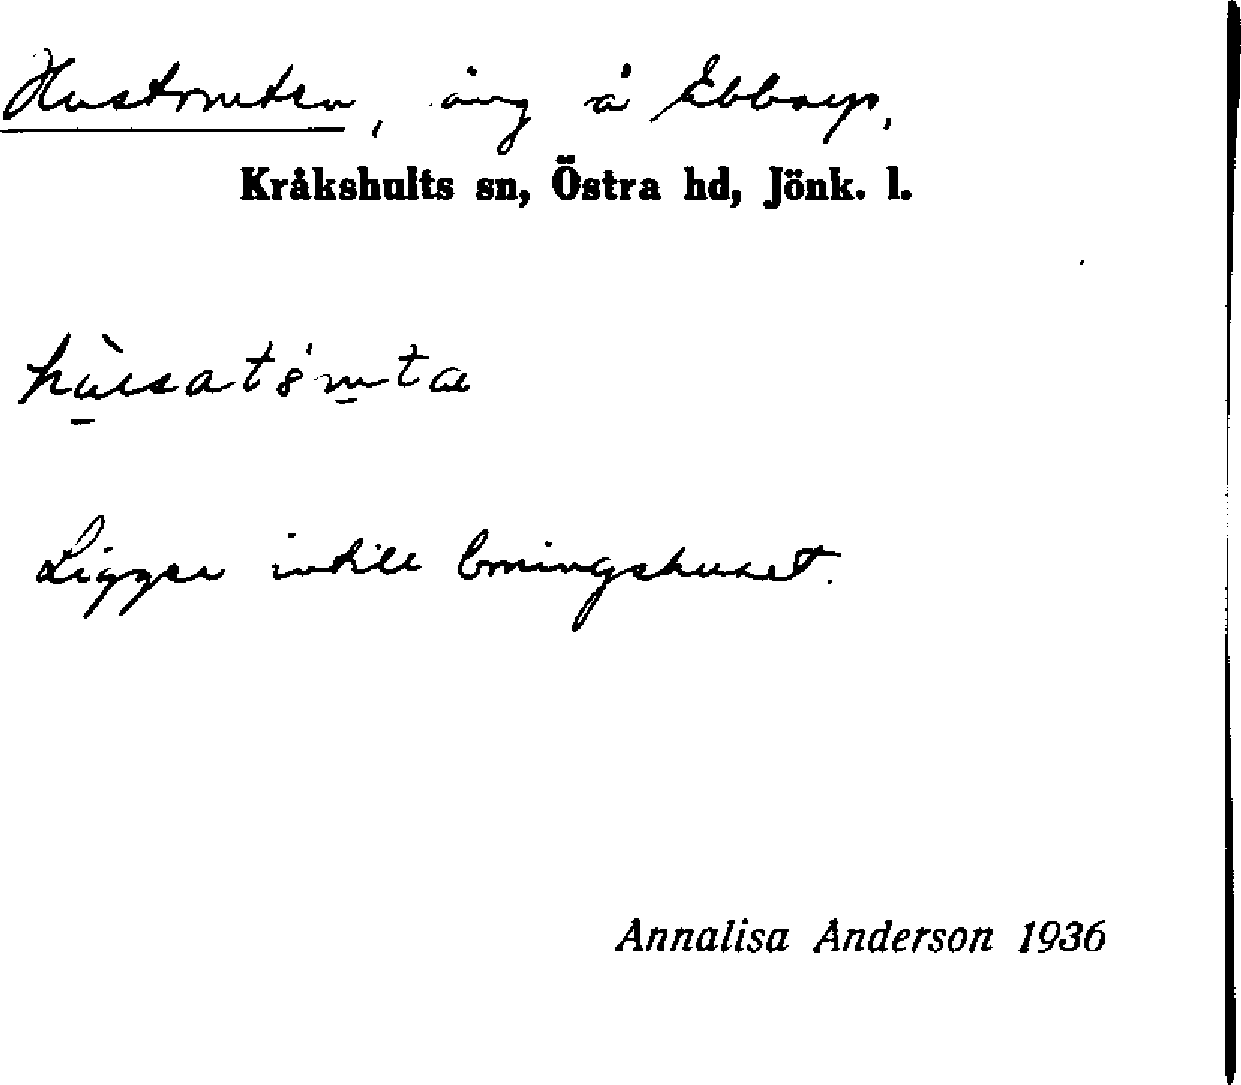 Hustomten, äng å Ebbarp,
Kråkshults sn, Östra hd, Jönk. l.
Ligger intill boningshuset.
Annalisa Anderson 1936